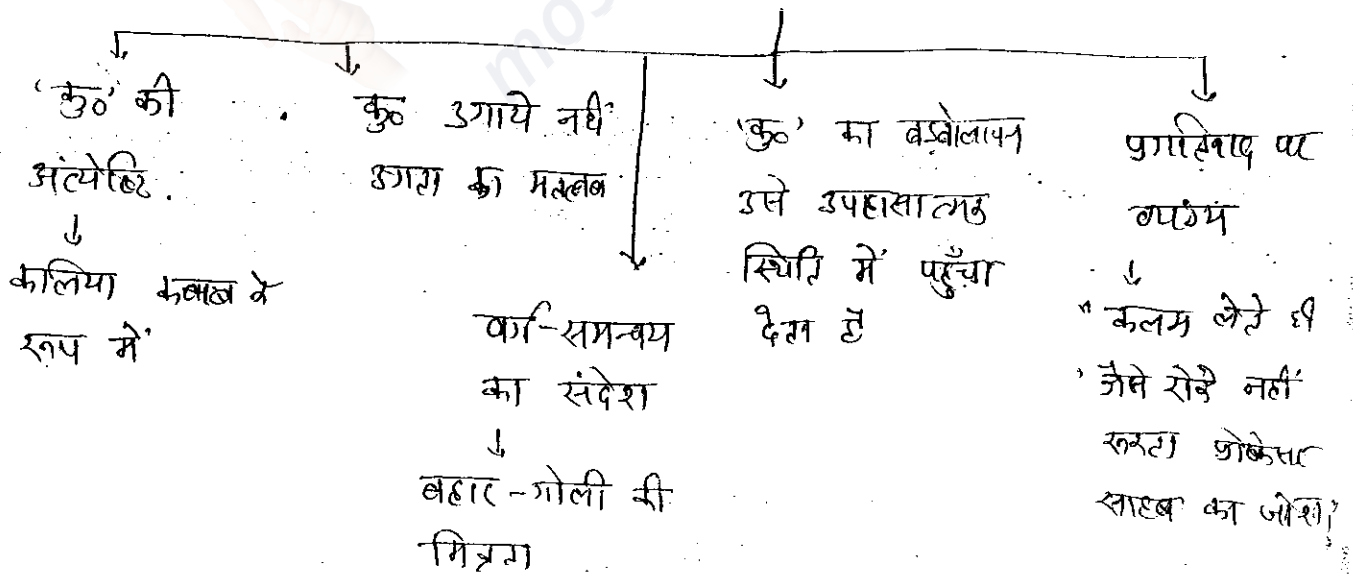 'कु०' की
अंत्येष्टि
कलिया कबाब के
रूप में
कु० उगाये नहीं
उगता का मतलब
वर्ग-समन्वय
का संदेश
बहार-गोली की
मित्रता
'कु०' का बड़बोलापन
उसे उपहासात्मक
स्थिति में पहुँचा
देता है
प्रगतिवाद पर
व्यंग्य
"कलम लेते ही
जैसे रोके नहीं
रुकता प्रोफेसर
साहब का जोश।"